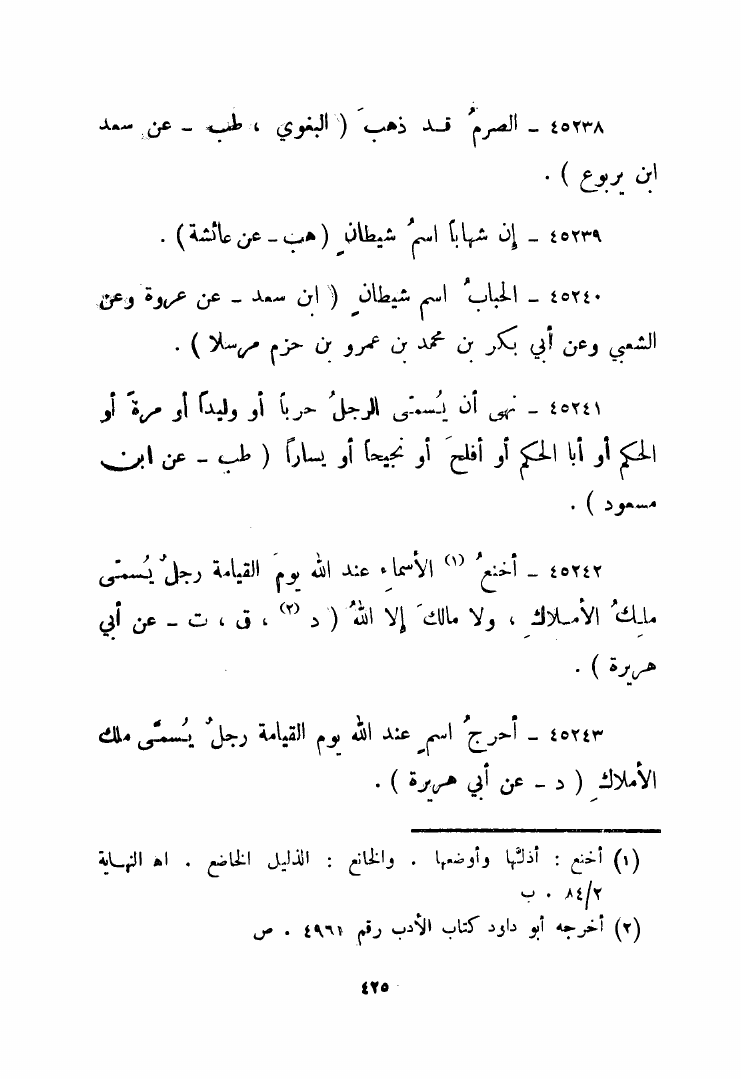 ٤٥٢٣٨ – الصرمُ قد ذهبَ ( البغوي ، طب – عن سعد
ابن يربوع ) .
٤٥٢٣٩ – إن شهاباً اسمُ شيطانٍ ( هب – عن عائشة ) .
٤٥٢٤٠ – الحبابُ اسم شيطانٍ ( ابن سعد – عن عروة وعن
الشعبي وعن أبي بكر بن محمد بن عمرو بن حزم مرسلا ) .
٤٥٢٤١ – نهى أن يُسمّى الرجلُ حرباً أو وليداً أو مرةً أو
الحكم أو أبا الحكم أو أفلحَ أو نجيحاً أو يساراً ( طب – عن ابن
مسعود ) .
٤٥٢٤٢ – أخنعُ (١) الأسماءِ عند الله يومَ القيامة رجلٌ يُسمّى
ملِكُ الأملاكِ ، ولا مالكَ إلا اللهُ ( د (٢) ، ق ، ت – عن أبي
هريرة ) .
٤٥٢٤٣ – أحرجُ اسمٍ عند الله يوم القيامة رجلٌ يُسمَّى ملك
الأملاكِ ( د – عن أبي هريرة ) .
(١) أخنع : أذلّها وأوضعها . والخانع : الذليل الخاضع . اه النهاية
٨٤/٢ . ب
(٢) أخرجه أبو داود كتاب الأدب رقم ٤٩٦١ . ص
٤٢٥